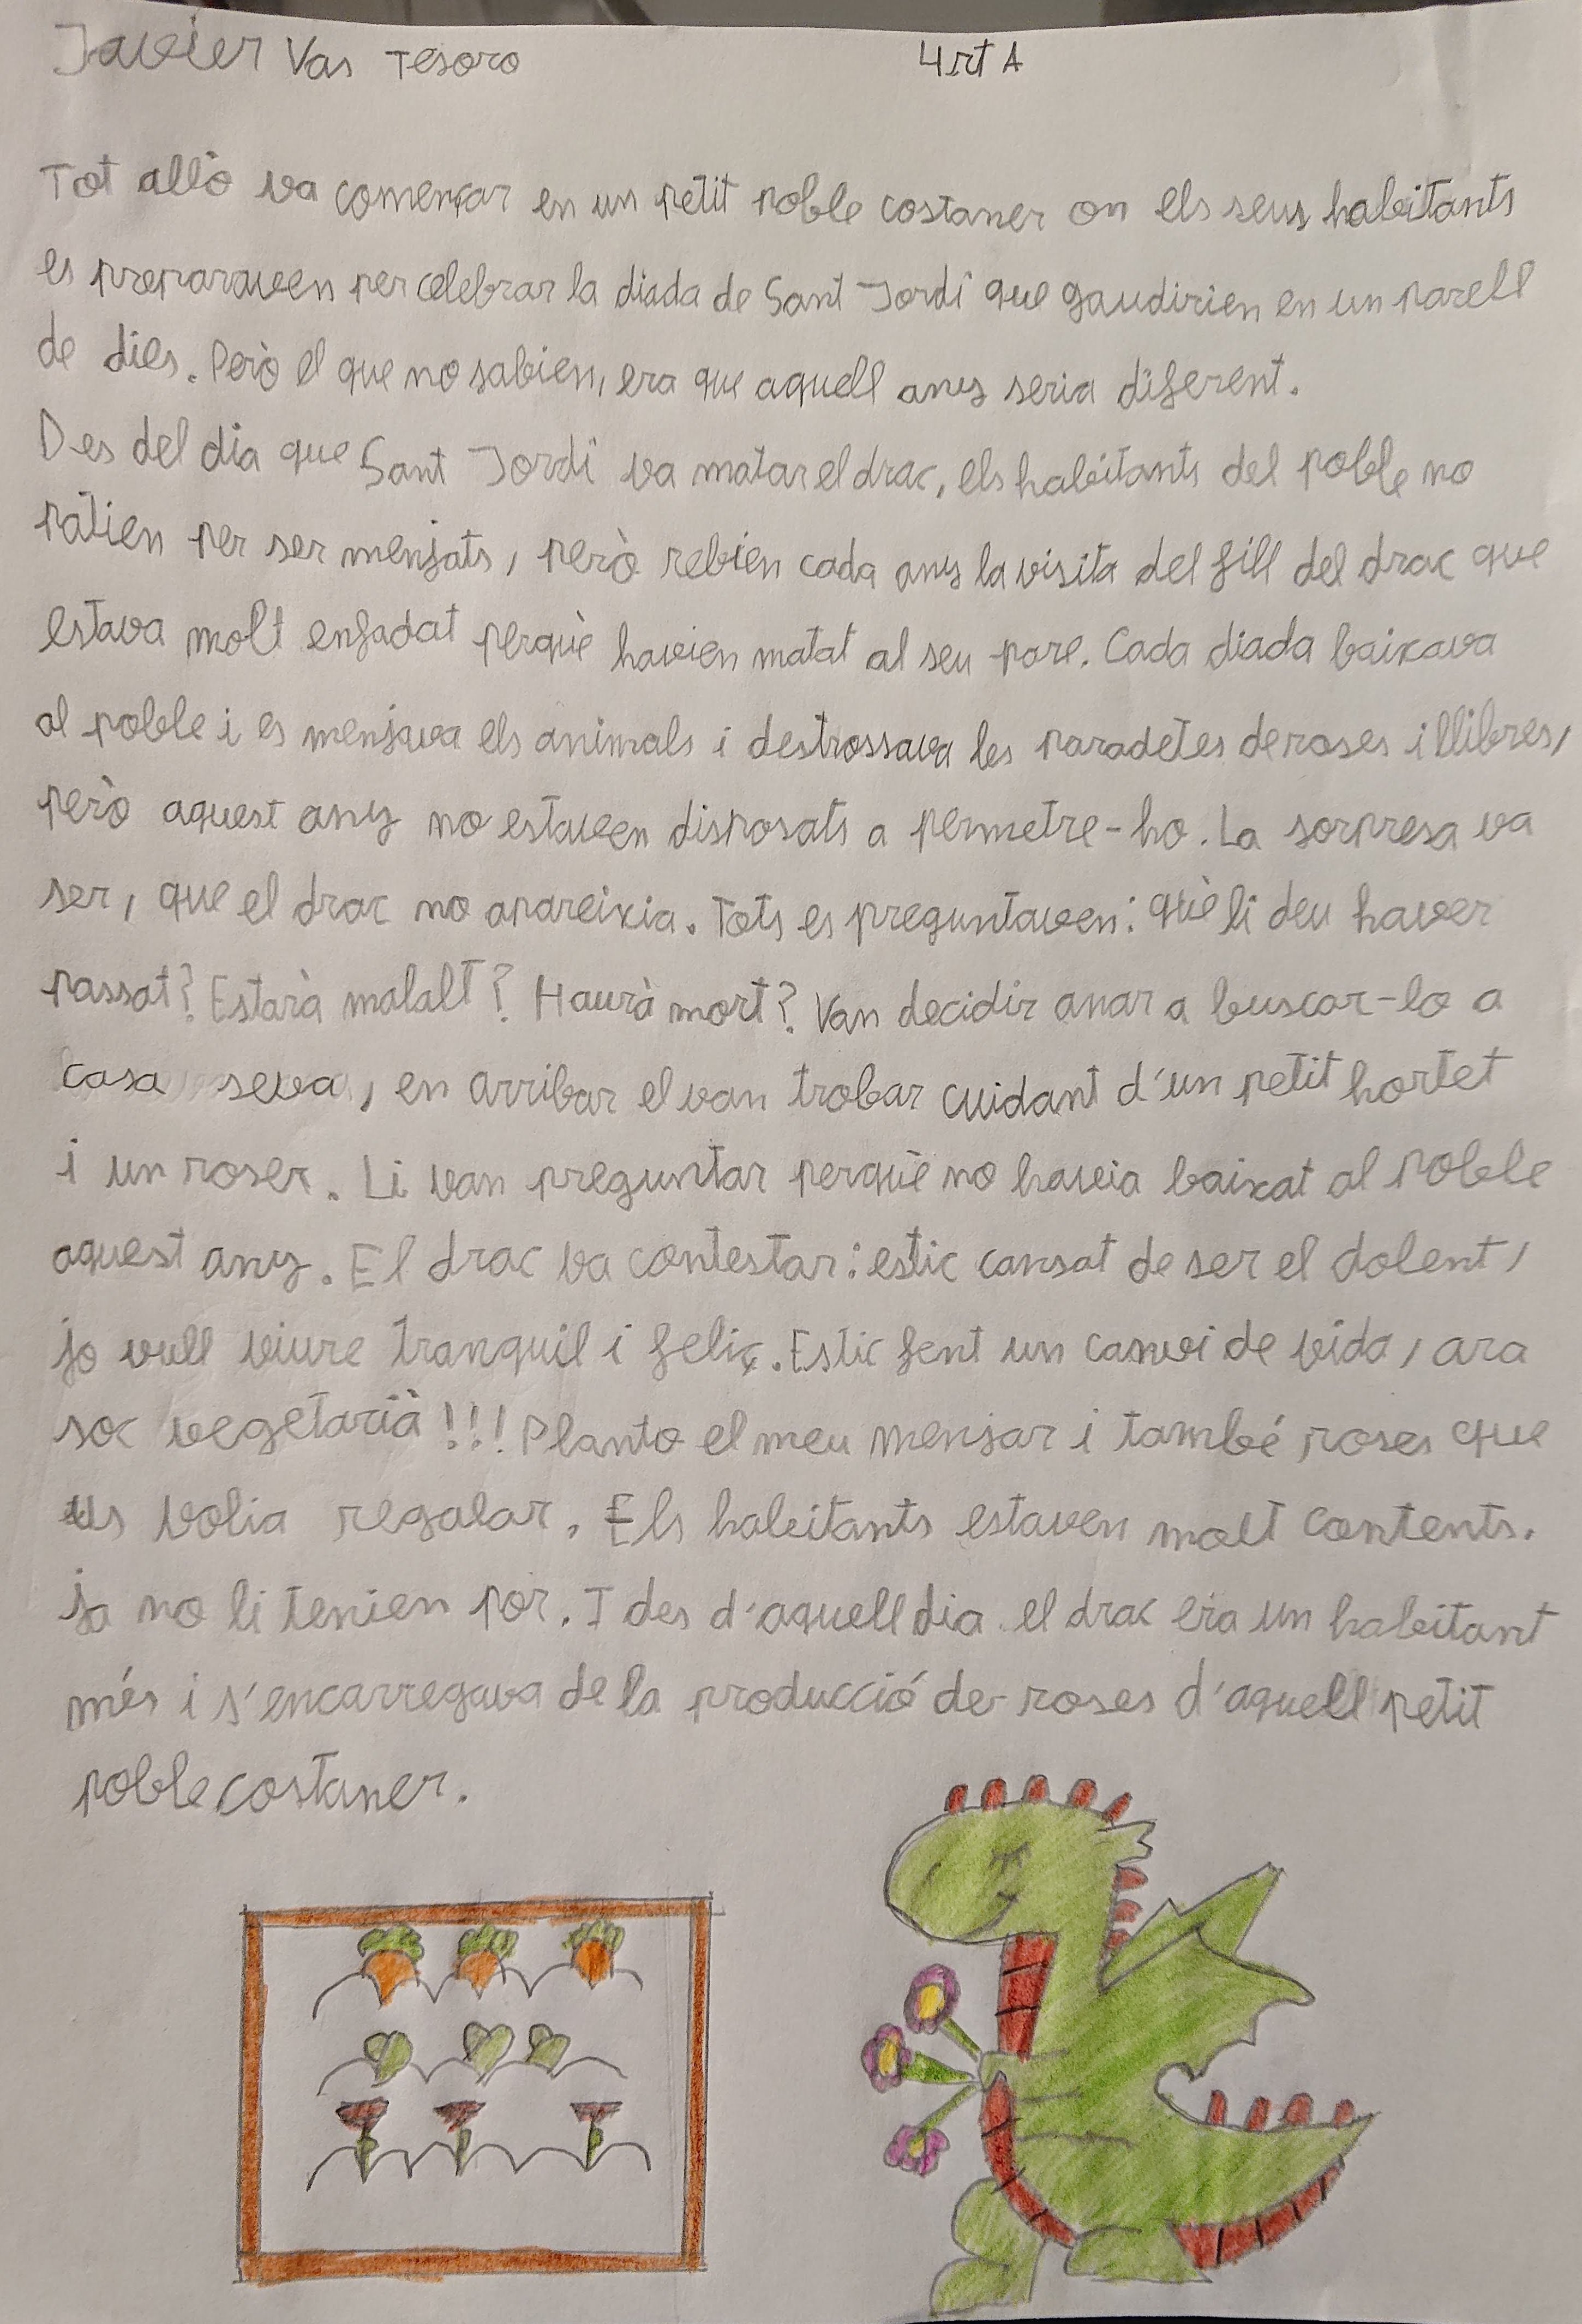 Javier Vas Tesoro 4rt A
Tot allò va començar en un petit poble costaner on els seus habitants
es preparaven per celebrar la diada de Sant Jordi que gaudirien en un parell
de dies. Però el que no sabien, era que aquell any seria diferent.
Des del dia que Sant Jordi va matar el drac, els habitants del poble no
patien per ser menjats, però rebien cada any la visita del fill del drac que
estava molt enfadat perquè havien matat al seu pare. Cada diada baixava
al poble i es menjava els animals i destrossava les paradetes de roses i llibres,
però aquest any no estaven disposats a permetre-ho. La sorpresa va
ser, que el drac no apareixia. Tots es preguntaven: què li deu haver
passat? Estarà malalt? Haurà mort? Van decidir anar a buscar-lo a
casa seva, en arribar el van trobar cuidant d'un petit hortet
i un roser. Li van preguntar perquè no havia baixat al poble
aquest any. El drac va contestar: estic cansat de ser el dolent,
jo vull viure tranquil i feliç. Estic fent un canvi de vida, ara
soc vegetarià!!! Planto el meu menjar i també roses que
us volia regalar. Els habitants estaven molt contents.
ja no li tenien por. I des d'aquell dia el drac era un habitant
més i s'encarregava de la producció de roses d'aquell petit
poble costaner.